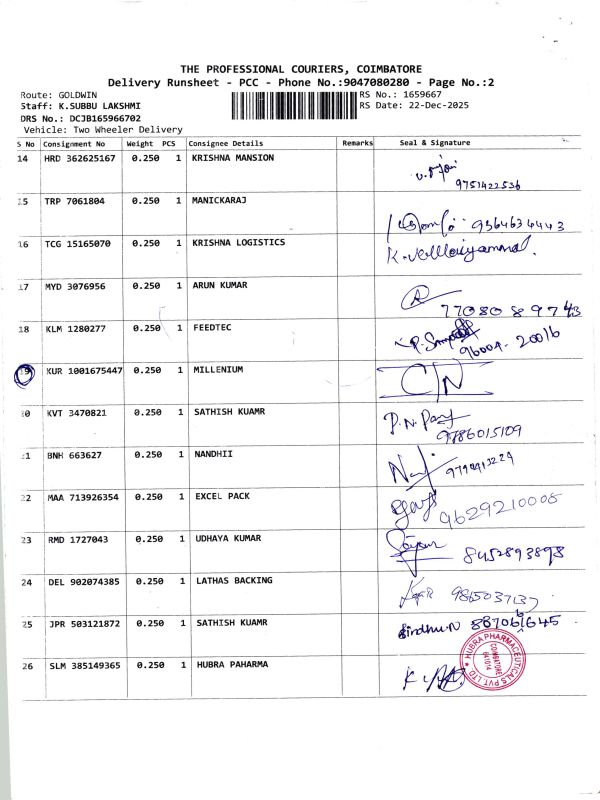 THE PROFESSIONAL COURIERS, COIMBATORE
Delivery Runsheet - PCC - Phone No.:9047080280 - Page No.:2
Route: GOLDWIN RS No.: 1659667
Staff: K.SUBBU LAKSHMI RS Date: 22-Dec-2025
DRS No.: DCJB165966702
Vehicle: Two Wheeler Delivery
S No Consignment No Weight PCS Consignee Details Remarks Seal & Signature
14 HRD 362625167 0.250 1 KRISHNA MANSION
9751422536
15 TRP 7061804 0.250 1 MANICKARAJ
9364634443
16 TCG 15165070 0.250 1 KRISHNA LOGISTICS
17 MYD 3076956 0.250 1 ARUN KUMAR
77080 89743
18 KLM 1280277 0.250 1 FEEDTEC
96009-20016
19 KUR 1001675447 0.250 1 MILLENIUM
20 KVT 3470821 0.250 1 SATHISH KUAMR
9786015109
21 BNH 663627 0.250 1 NANDHII
22 MAA 713926354 0.250 1 EXCEL PACK
9629210006
23 RMD 1727043 0.250 1 UDHAYA KUMAR
8452893898
24 DEL 902074385 0.250 1 LATHAS BACKING
25 JPR 503121872 0.250 1 SATHISH KUAMR Sindhu.N
26 SLM 385149365 0.250 1 HUBRA PAHARMA
HUBRA PHARMACEUTICALS PVT. LTD
COIMBATORE
641014